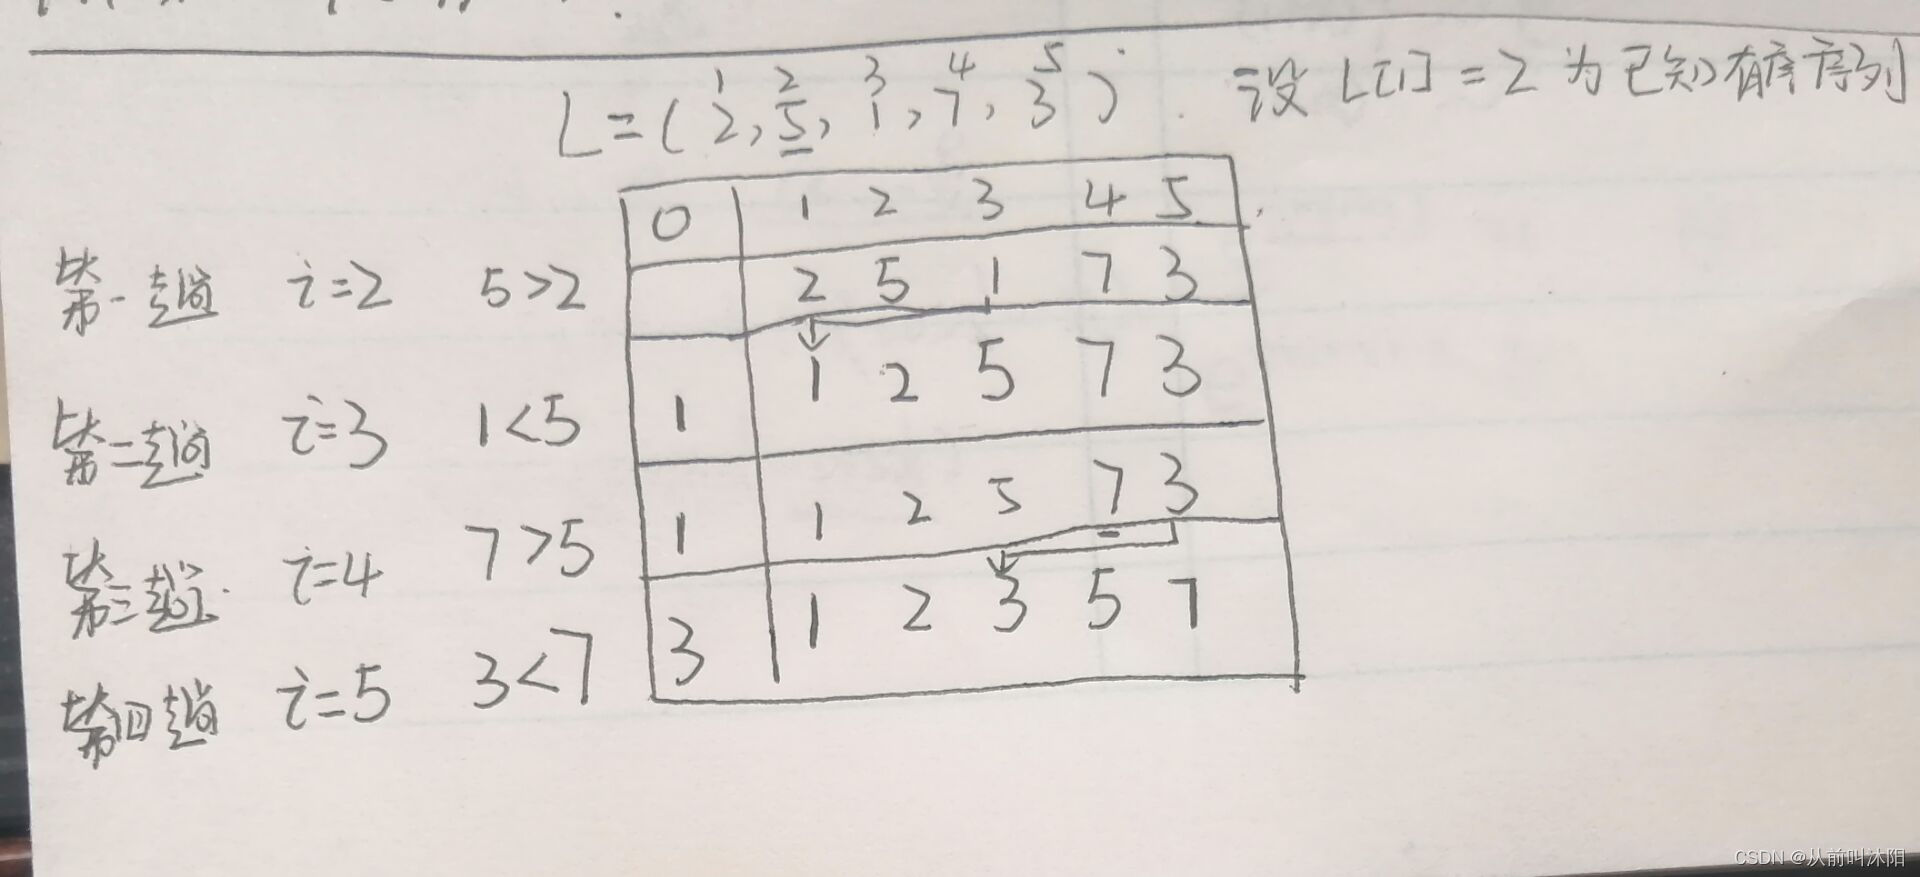 1 2 3 4 5
L=(2,5,1,7,3). 设 L[1]=2 为已知有序序列
0 1 2 3 4 5
第一趟 i=2 5>2 2 5 1 7 3
第二趟 i=3 1<5 1 1 2 5 7 3
第三趟 i=4 7>5 1 1 2 5 7 3
第四趟 i=5 3<7 3 1 2 3 5 7
CSDN @从前叫沐阳